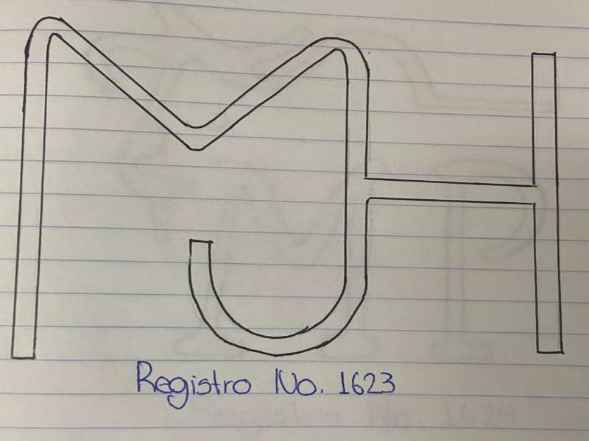 MJH
Registro No. 1623